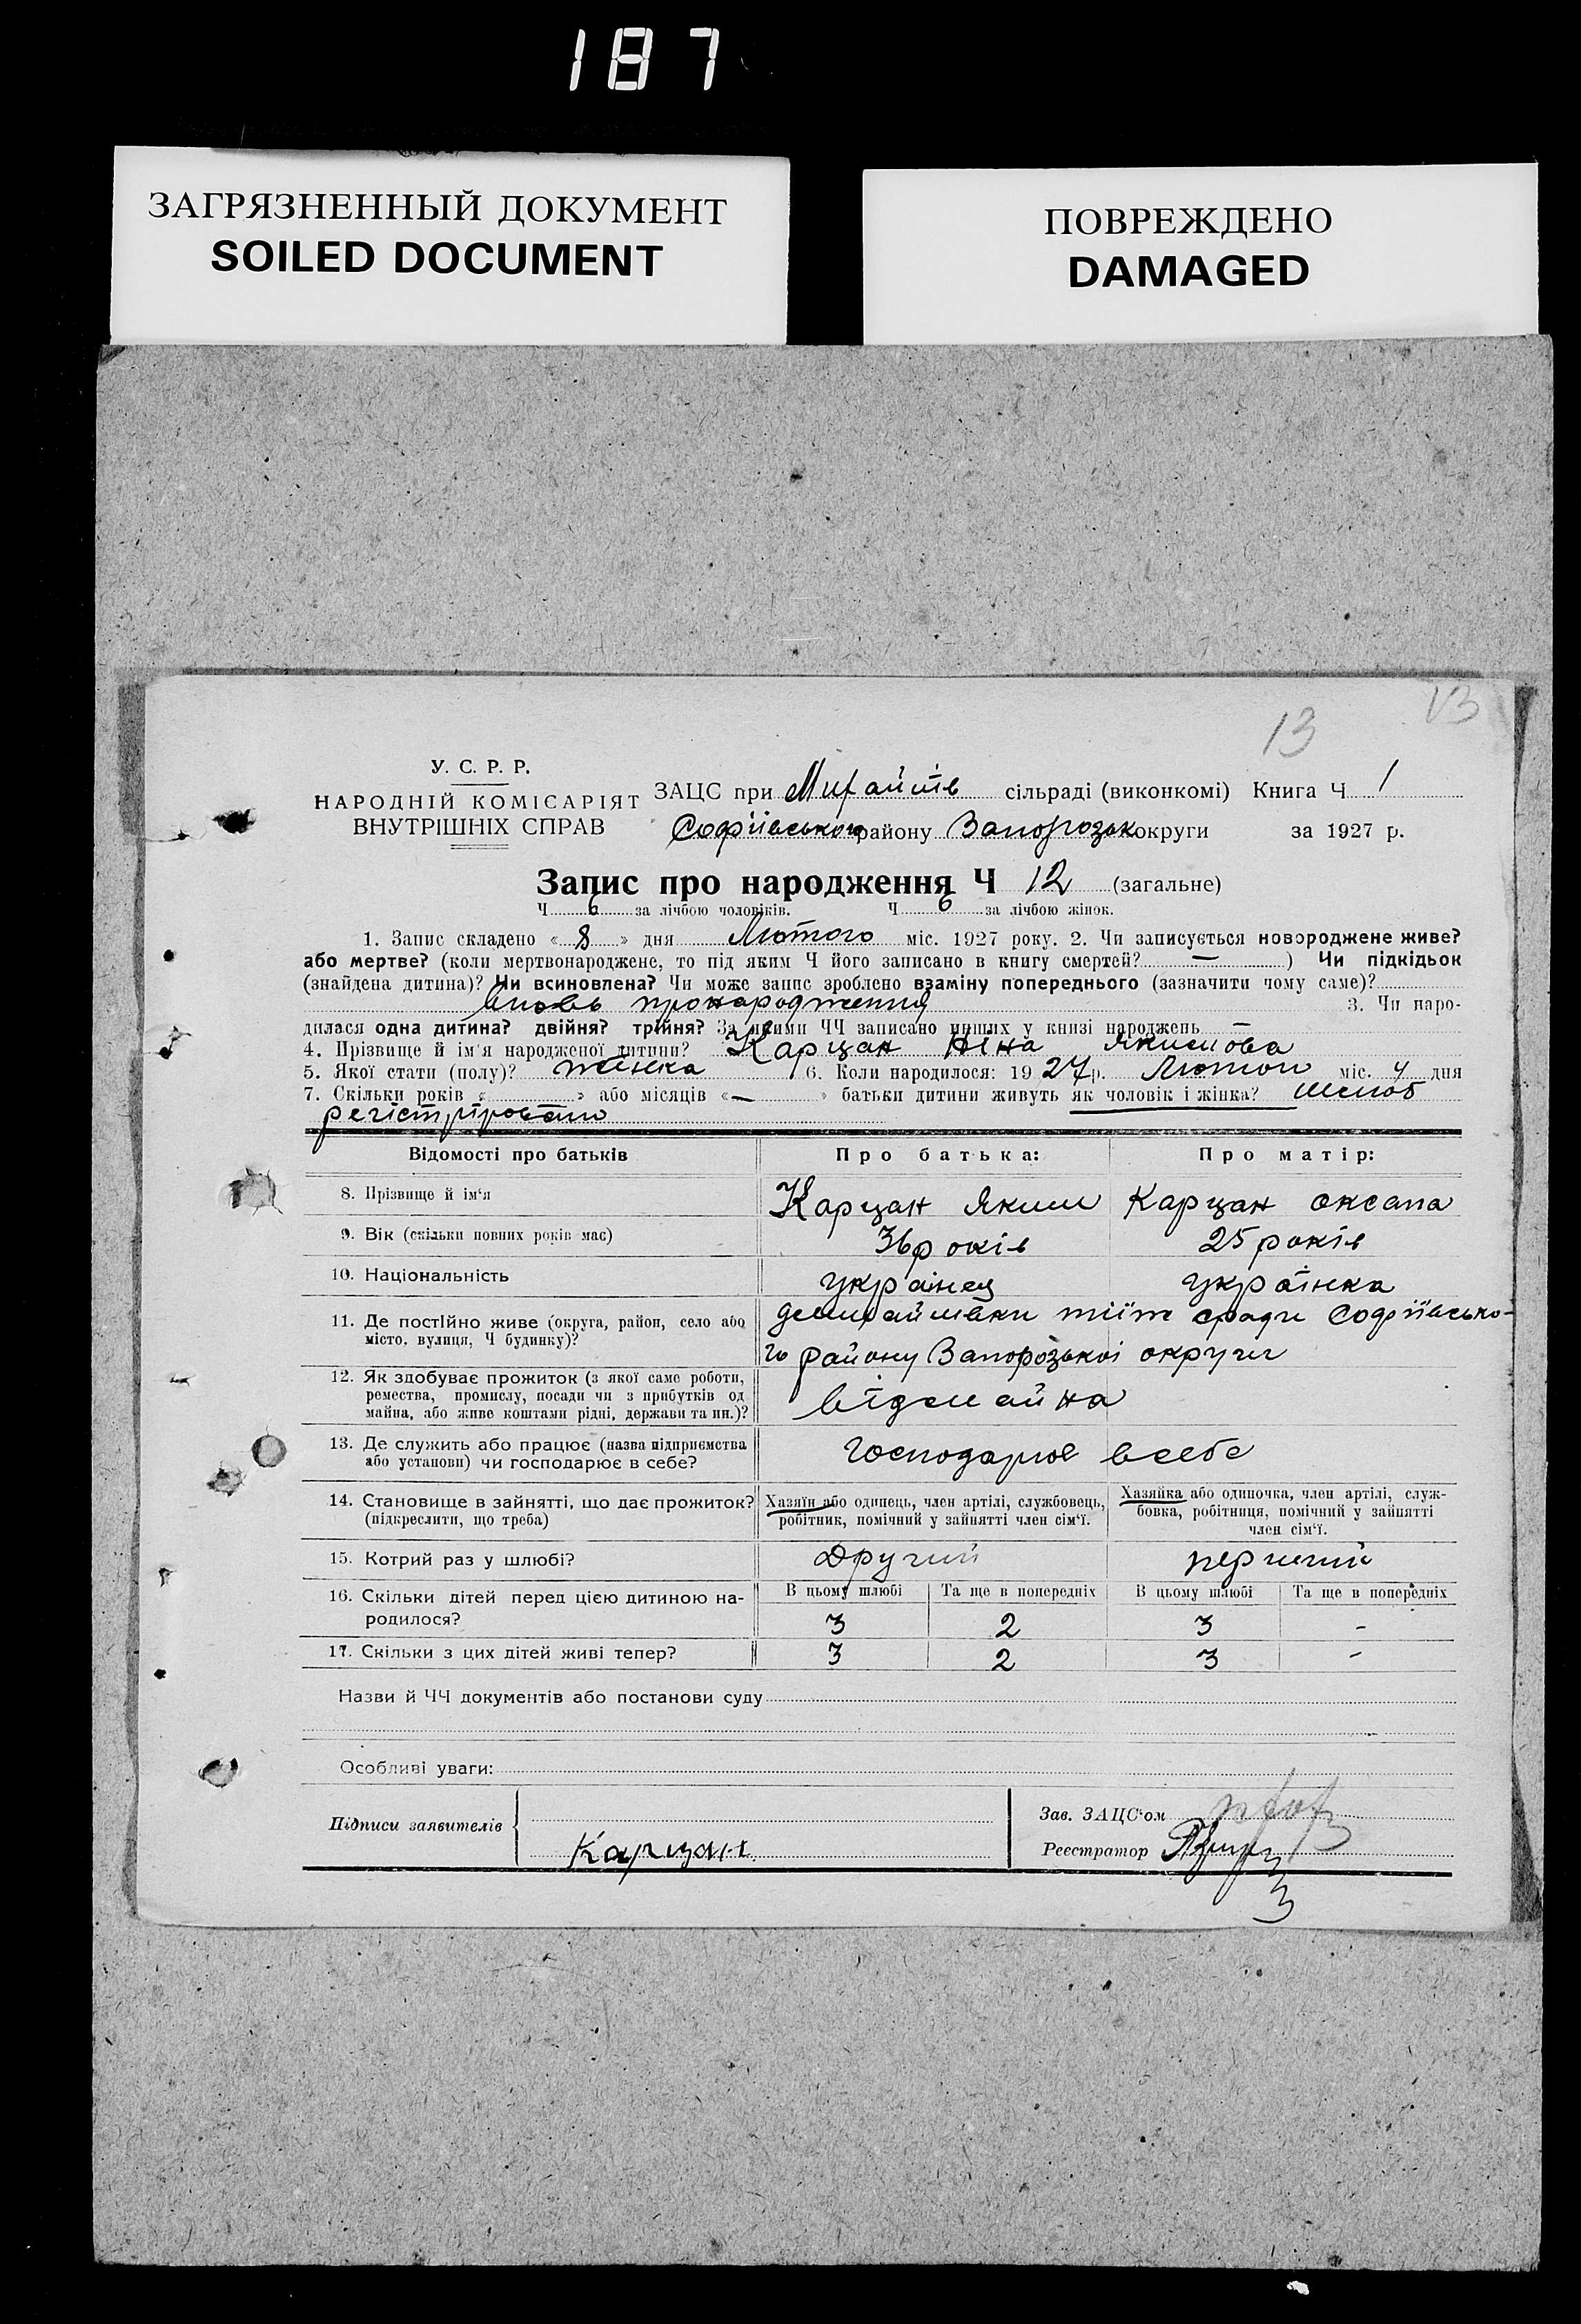 187
ЗАГРЯЗНЕННЫЙ ДОКУМЕНТ
SOILED DOCUMENT
ПОВРЕЖДЕНО
DAMAGED
13
13
У. С. Р. Р.
НАРОДНІЙ КОМІСАРІЯТ
ВНУТРІШНІХ СПРАВ
ЗАЦС при сільраді (виконкомі) Книга Ч 1
Софіївського району Запорозьк округи за 1927 р.
Запис про народження Ч 12 (загальне)
Ч 6 за лічбою чоловіків. Ч 6 за лічбою жінок.
1. Запис складено « 8 » дня Лютого міс. 1927 року. 2. Чи записується новороджене живе?
або мертве? (коли мертвонароджене, то під яким Ч його записано в книгу смертей? — ) Чи підкідьок
(знайдена дитина)? Чи всиновлена? Чи може запис зроблено взаміну попереднього (зазначити чому саме)?
вновь пронародження 3. Чи наро-
дилася одна дитина? двійня? трійня? За якими ЧЧ записано инших у книзі народжень —
4. Прізвище й ім'я народженої дитини? Карцан Ніна Якимова
5. Якої стати (полу)? жінка 6. Коли народилося: 19 27 р. Лютого міс. 4 дня
7. Скільки років « » або місяців « — » батьки дитини живуть як чоловік і жінка? шлюб
регістріровано
Відомості про батьків Про батька: Про матір:
8. Прізвище й ім'я Карцан Яким Карцан оксана
9. Вік (скільки повних років має) 36 років 25 років
10. Національність українец українка
11. Де постійно живе (округа, район, село або
місто, вулиця, Ч будинку)?
Софіївсько-
го району Запорозькоі округи
12. Як здобуває прожиток (з якої саме роботи,
ремества, промислу, посади чи з прибутків од
майна, або живе коштами рідні, держави та ин.)?
відмайна
13. Де служить або працює (назва підприємства
або установи) чи господарює в себе?
господарює всебе
14. Становище в зайнятті, що дає прожиток?
(підкреслити, що треба)
Хазяїн або одинець, член артілі, службовець,
робітник, помічний у зайнятті член сім'ї.
Хазяйка або одиночка, член артілі, служ-
бовка, робітниця, помічний у зайнятті
член сім'ї.
15. Котрий раз у шлюбі? Другий перший
16. Скільки дітей перед цією дитиною на-
родилося?
В цьому шлюбі Та ще в попередніх В цьому шлюбі Та ще в попередніх
3 2 3 -
17. Скільки з цих дітей живі тепер? 3 2 3 -
Назви й ЧЧ документів або постанови суду
Особливі уваги:
Підписи заявителів
Карцан
Зав. ЗАЦС'ом
Реєстратор